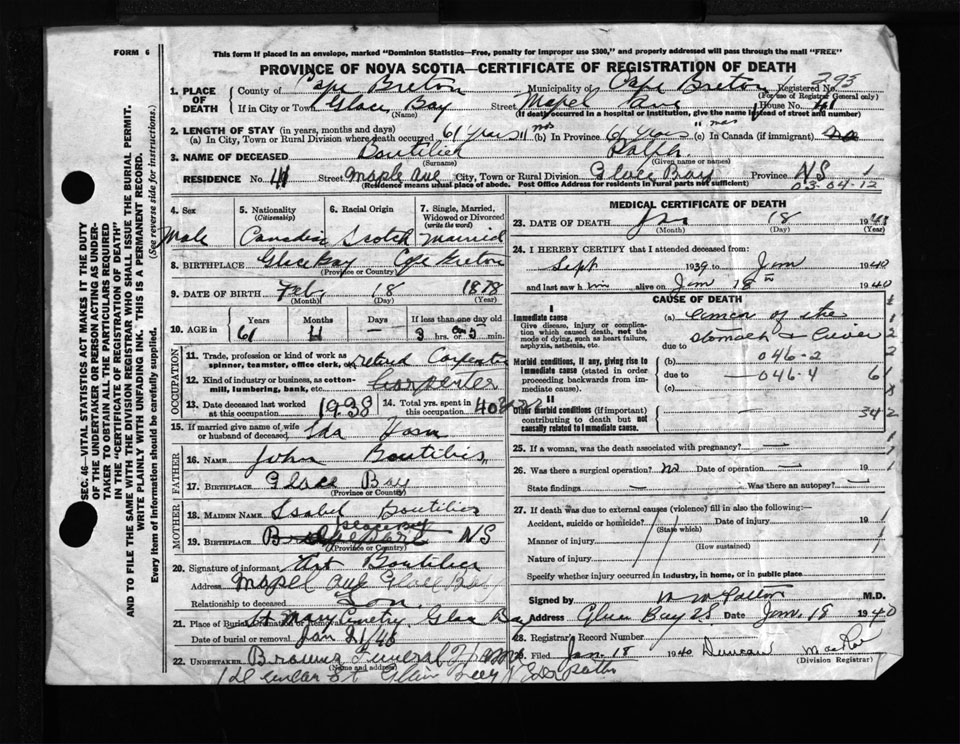 FORM 6
This form if placed in an envelope, marked "Dominion Statistics—Free, penalty for improper use $300," and properly addressed will pass through the mail "FREE"
PROVINCE OF NOVA SCOTIA—CERTIFICATE OF REGISTRATION OF DEATH
1. PLACE OF DEATH
County of Cape Breton Municipality of Cape Breton Registered No. 293
(For use of Registrar General only)
If in City or Town Glace Bay Street Mapel Ave House No. 41
(Name) (If death occurred in a hospital or institution, give the name instead of street and number)
2. LENGTH OF STAY (in years, months and days)
(a) In City, Town or Rural Division where death occurred 61 years 11 mos (b) In Province 61 years 11 mos (c) In Canada (if immigrant)
3. NAME OF DECEASED Boutilier
(Surname) (Given name or names)
RESIDENCE No. 41 Street Maple Ave City, Town or Rural Division Glace Bay Province NS 1
(Residence means usual place of abode. Post Office Address for residents in rural parts not sufficient)
03-04-12
4. Sex
Male
5. Nationality
(Citizenship)
Canadian
6. Racial Origin
Scotch
7. Single, Married, Widowed or Divorced
(write the word)
Married
8. BIRTHPLACE Glace Bay Cape Breton
(Province or Country)
9. DATE OF BIRTH Feb. 18 1878
(Month) (Day) (Year)
10. AGE in
Years Months Days If less than one day old
61 11 — hrs. or min.
OCCUPATION
11. Trade, profession or kind of work as spinner, teamster, office clerk, etc. retired Carpenter
12. Kind of industry or business, as cotton-mill, lumbering, bank, etc. Carpenter
13. Date deceased last worked at this occupation 1938
14. Total yrs. spent in this occupation 40
15. If married give name of wife or husband of deceased Ida
FATHER
16. NAME John Boutilier
17. BIRTHPLACE Glace Bay
(Province or Country)
MOTHER
18. MAIDEN NAME Isabel Boutilier
19. BIRTHPLACE Glace Bay NS
(Province or Country)
20. Signature of informant Boutilier
Address Mapel Ave Glace Bay
Relationship to deceased Son
21. Place of Burial, Cremation or Removal Cemetry, Glace Bay
Date of burial or removal Jan 21/40
22. UNDERTAKER Funeral Home
(Name and address)
MEDICAL CERTIFICATE OF DEATH
23. DATE OF DEATH Jan 18 1940
(Month) (Day) (Year)
24. I HEREBY CERTIFY that I attended deceased from:
Sept 1939 to Jan 1940
and last saw him alive on Jan 18th 1940
CAUSE OF DEATH
Immediate cause
Give disease, injury or complication which caused death, not the mode of dying, such as heart failure, asphyxia, asthenia, etc.
(a) Cancer of the
stomach & Liver
due to
Morbid conditions, if any, giving rise to immediate cause (stated in order proceeding backwards from immediate cause).
(b) 046-2
due to 046-4 61
(c)
Other morbid conditions (if important) contributing to death but not causally related to immediate cause.
342
25. If a woman, was the death associated with pregnancy? —
26. Was there a surgical operation? no Date of operation — 19
State findings — Was there an autopsy? —
27. If death was due to external causes (violence) fill in also the following:—
Accident, suicide or homicide? Date of injury 19
(State which)
Manner of injury
(How sustained)
Nature of injury
Specify whether injury occurred in industry, in home, or in public place
Signed by M.D.
Address Glace Bay NS Date Jan. 18 1940
28. Registration Record Number
29. Filed Jan. 18 1940 Duncan
(Division Registrar)
SEC. 46—VITAL STATISTICS ACT MAKES IT THE DUTY OF THE UNDERTAKER OR PERSON ACTING AS UNDERTAKER TO OBTAIN ALL THE PARTICULARS REQUIRED IN THE "CERTIFICATE OF REGISTRATION OF DEATH" AND TO FILE THE SAME WITH THE DIVISION REGISTRAR WHO SHALL ISSUE THE BURIAL PERMIT.
WRITE PLAINLY WITH UNFADING INK. THIS IS A PERMANENT RECORD.
Every item of information should be carefully supplied. (See reverse side for instructions.)